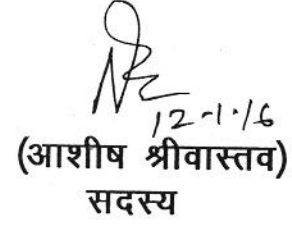 12-1-16
(आशीष श्रीवास्तव)
सदस्य